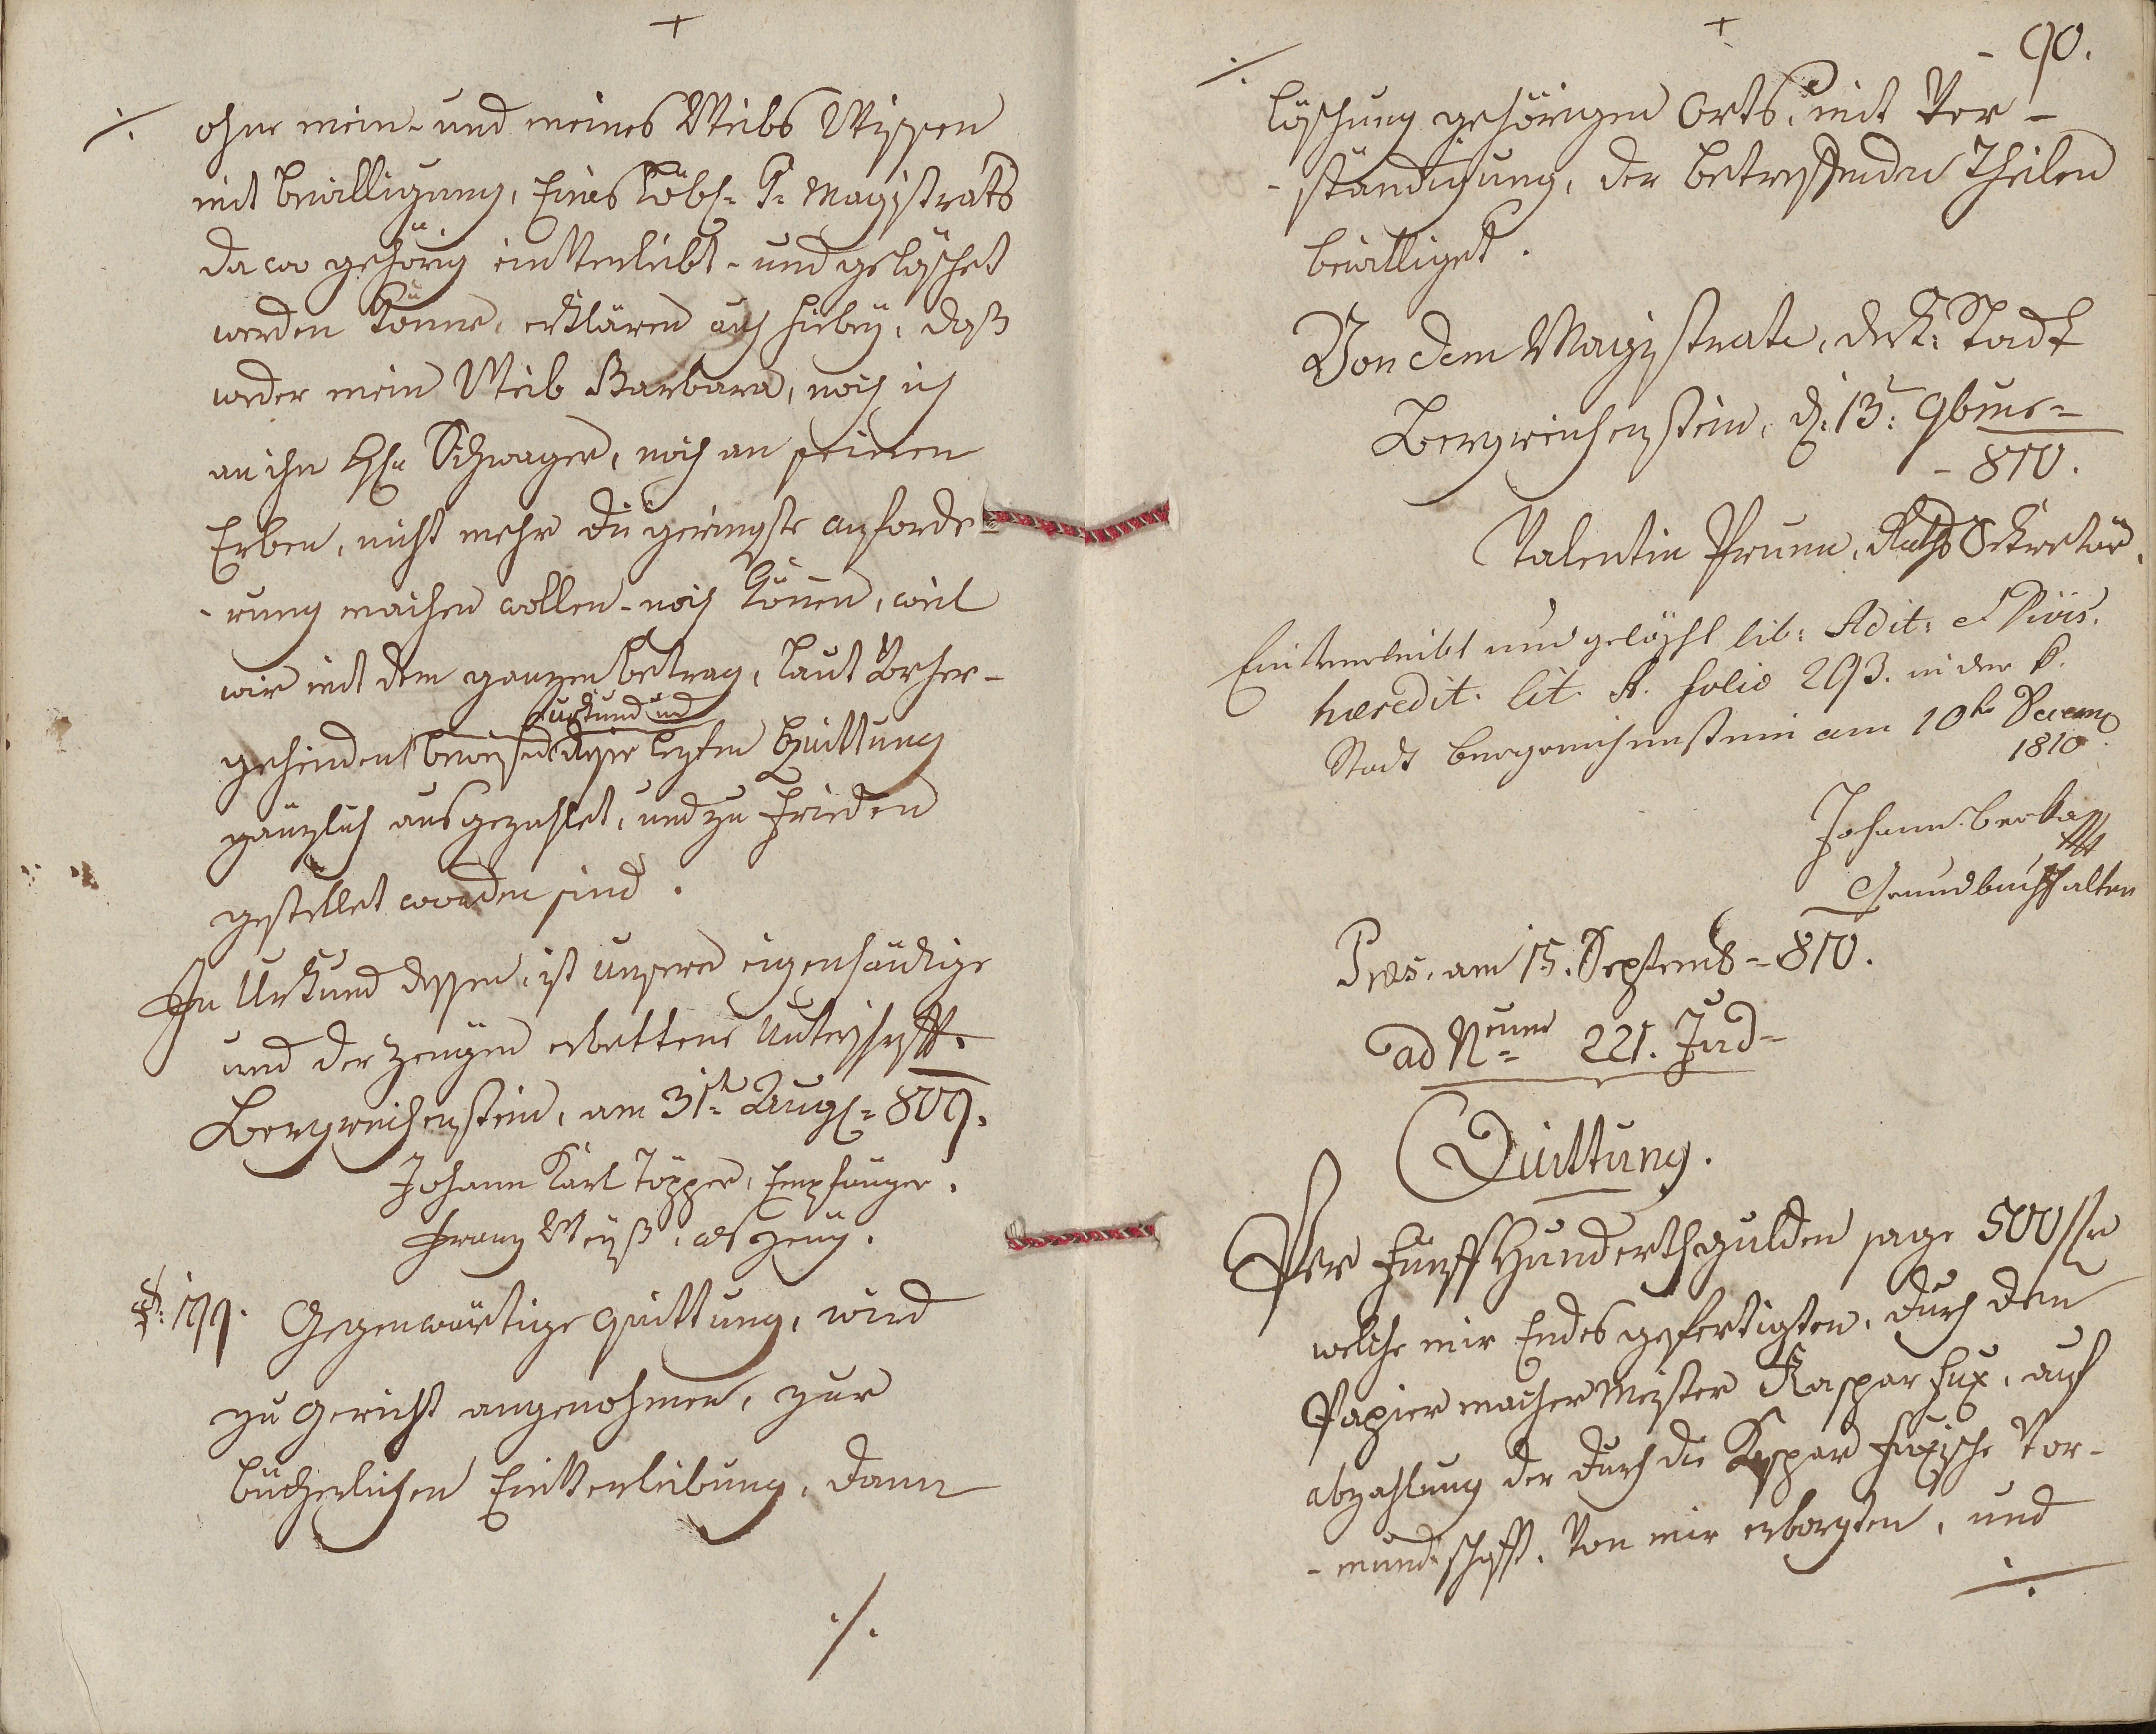 +
./. ohne mein- und meines Weibs Wissen
mit Bewilligung, Eines Löbl: Magistrats
da wo gehörig einVerleibt- und gelöschet
werden könne, erklären auch hiebey, daß
weder mein Weib Barbara, noch ich
an ihn H: Schwager, noch an seinen
Erben, nicht mehr die geringste anforde-
-rung machen wollen- noch können, weil
wir mit dem ganzen betrag, laut Vorher-
urkund und
gehenden dieser lezten Quittung
gänzlich ausgezahlet, und zu Frieden
gestellet worden sind.
In Urkund dessen, ist unsere eigenhändige
und der Zeugen erbettene Unterschrifft.
Bergreichenstein, am 31t= Aug: 809.
Johann Karl Töpper, Empfänger.
Franz Weyß, als Zeug.
199. Gegenwärtige Quittung, wird
zu Gericht angenohmen, zur
bücherlichen EinVerleibung, dann
./.
+
- 90.
./.
löschung gehörigen Orts, mit Ver-
-ständigung, der betreffenden Theilen
bewilliget.
Von dem Magistrate, der K: Stadt
Bergreichenstein, d: 13: 9bris=
- 810.
Valentin Prunn, Raths Sekretär.
EinVerleibt und gelöscht lib: Adit: et Divis.
hæredit. lit. A. folio 293. in der k.
Stadt Bergreichenstein am 10te Decemb
1810.
Johann Berka
Grundbuchhalter
Præs. am 15. Septemb=810.
ad Num= 221. Jud=
Quittung.
Per FünffHunderth gulden sage 500 f
welche mir Endesgefertigten, durch den
Papiermacher Meister Kaspar Fux, auf
abzahlung der durch die Kaspar Fuxische Vor-
-mundschafft, Von mir erborgten, und
./.